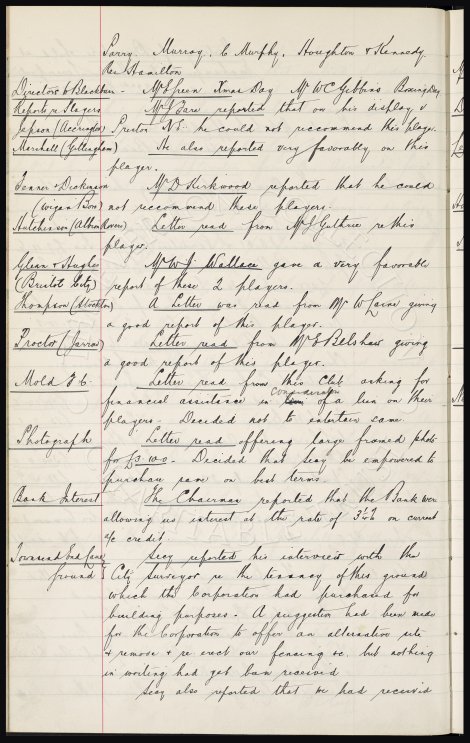 Parry. Murray, C Murphy, Houghton & Kennedy
Rev Hamilton
Directors to Blackburn - Mr Green Xmas Day Mr W C Gibbins Boxing Day
Reports re Players Mr J Bare reported that on his display v
Jepson (Accrington) Preston N.E. he could not reccommend this player.
Marshall (Gillingham) He also reported very favorably on this
player.
Jenner & Dickinson Mr D Kirkwood reported that he could
(Wigan Boro) not reccommend these players.
Hutchinson (Albion Rovers) Letter read from Mr J Guthrie re this
player.
Glenn & Hughes Mr W J Wallace gave a very favorable
(Bristol City) report of these 2 players.
Thompson (Stockton) A Letter was read from Mr W Laine giving
a good report of this player.
Proctor (Jarrow) Letter read from Mr F Belshaw giving
a good report of this player.
Mold F.C. Letter read from this Club asking for
financial assistance in consideration of a lien on their
players - Decided not to entertain same
Photograph Letter read offering large framed photo
for £3.10.0 - Decided that Secy be empowered to
purchase same on best terms.
Bank Interest The Chairman reported that the Bank were
allowing us interest at the rate of 3½% on current
a/c credit.
Townsend End Lane Secy reported his interview with the
Ground City Surveyor re the tenancy of this ground
which the Corporation had purchased for
building purposes - A suggestion had been made
for the Corporation to offer an alternative site
& remove & re erect our fencing &c, but nothing
in writing had yet been received
Secy also reported that we had received